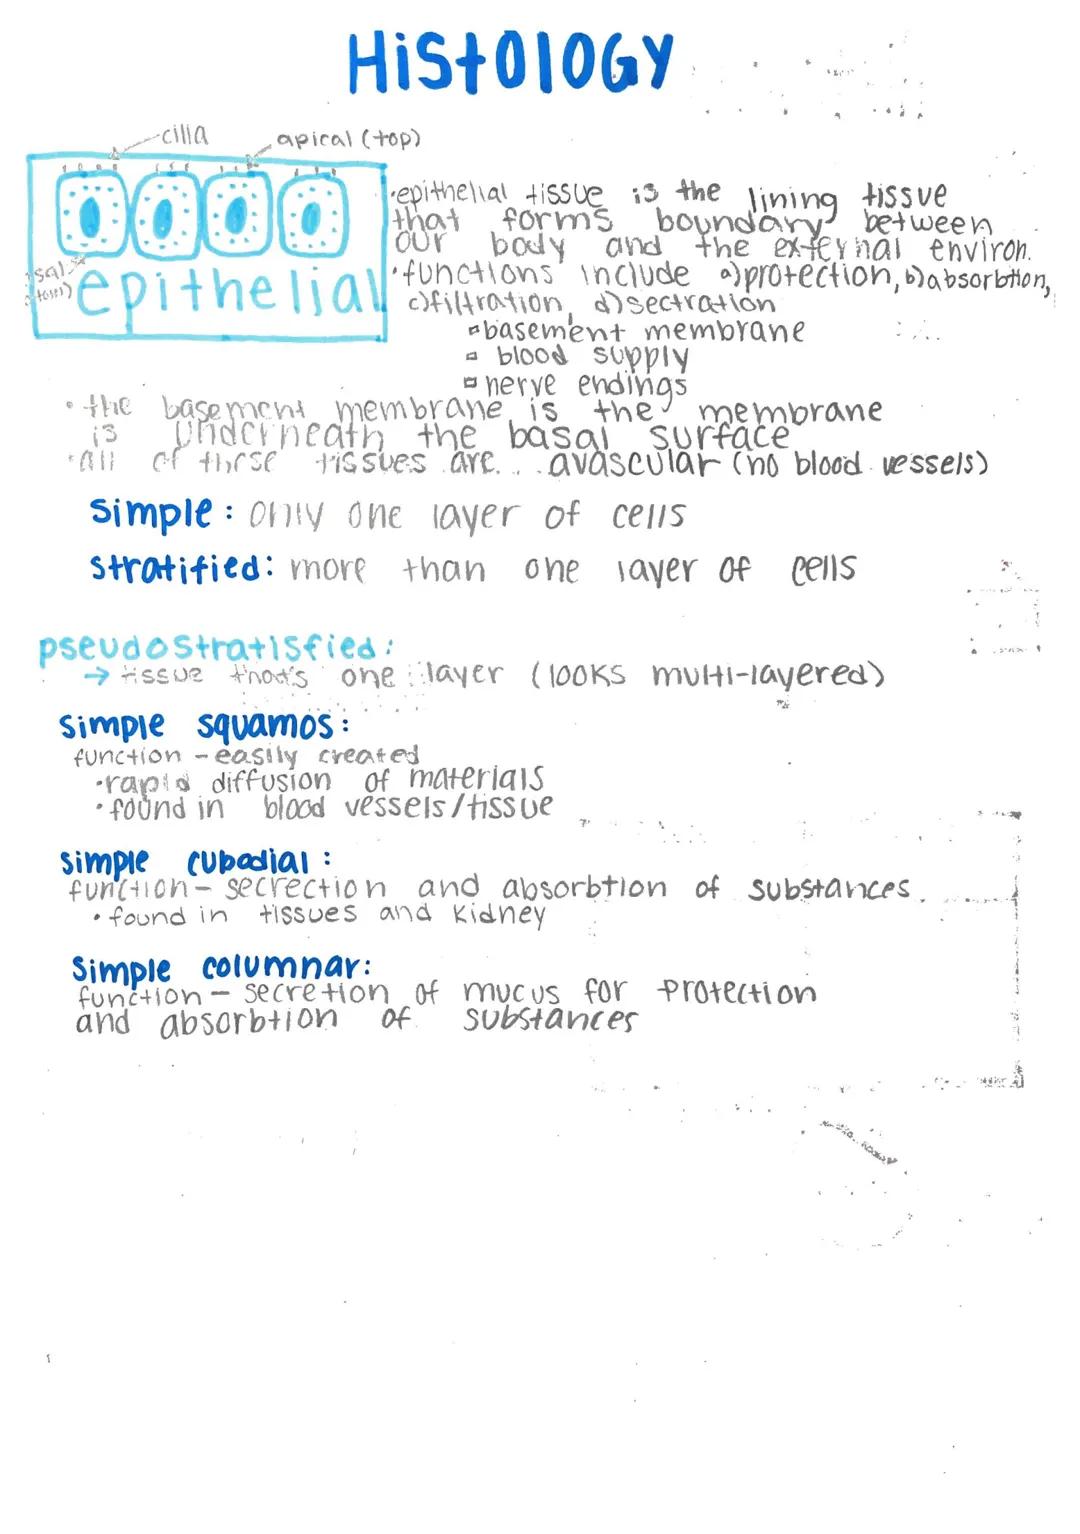 HiStOlOGY
cilia
apical (top)
epithelial
•epithelial tissue is the lining tissue
that forms boundary between
our body and the external environ.
•functions include a)protection, b)absorbtion,
c)filtration, d)sectration
▫basement membrane
▫ blood supply
▫nerve endings
• the basement membrane is the membrane
is underneath the basal surface
•all of these tissues are... avascular (no blood vessels)
Simple: only one layer of cells
stratified: more than one layer of cells
pseudostratisfied:
→ tissue that's one layer (looks multi-layered)
simple squamos:
function - easily created
•rapid diffusion of materials
•found in blood vessels/tissue
simple cubodial:
function - secrection and absorbtion of substances
• found in tissues and kidney
Simple columnar:
function - secretion of mucus for protection
and absorbtion of substances